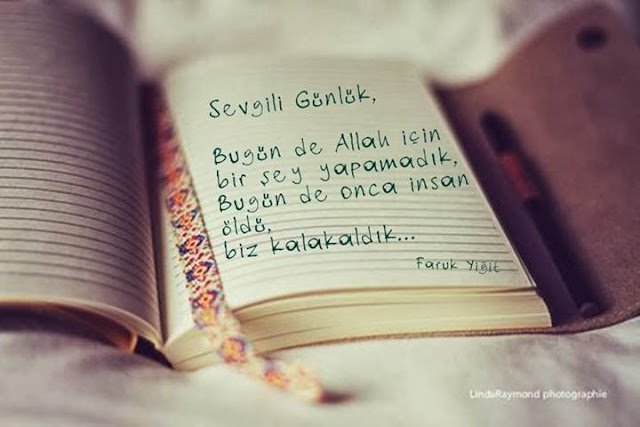 Sevgili Günlük,
Bugün de Allah için
bir şey yapamadık,
Bugün de onca insan
öldü,
biz kalakaldık...
Faruk Yiğit
LindaRaymond photographie